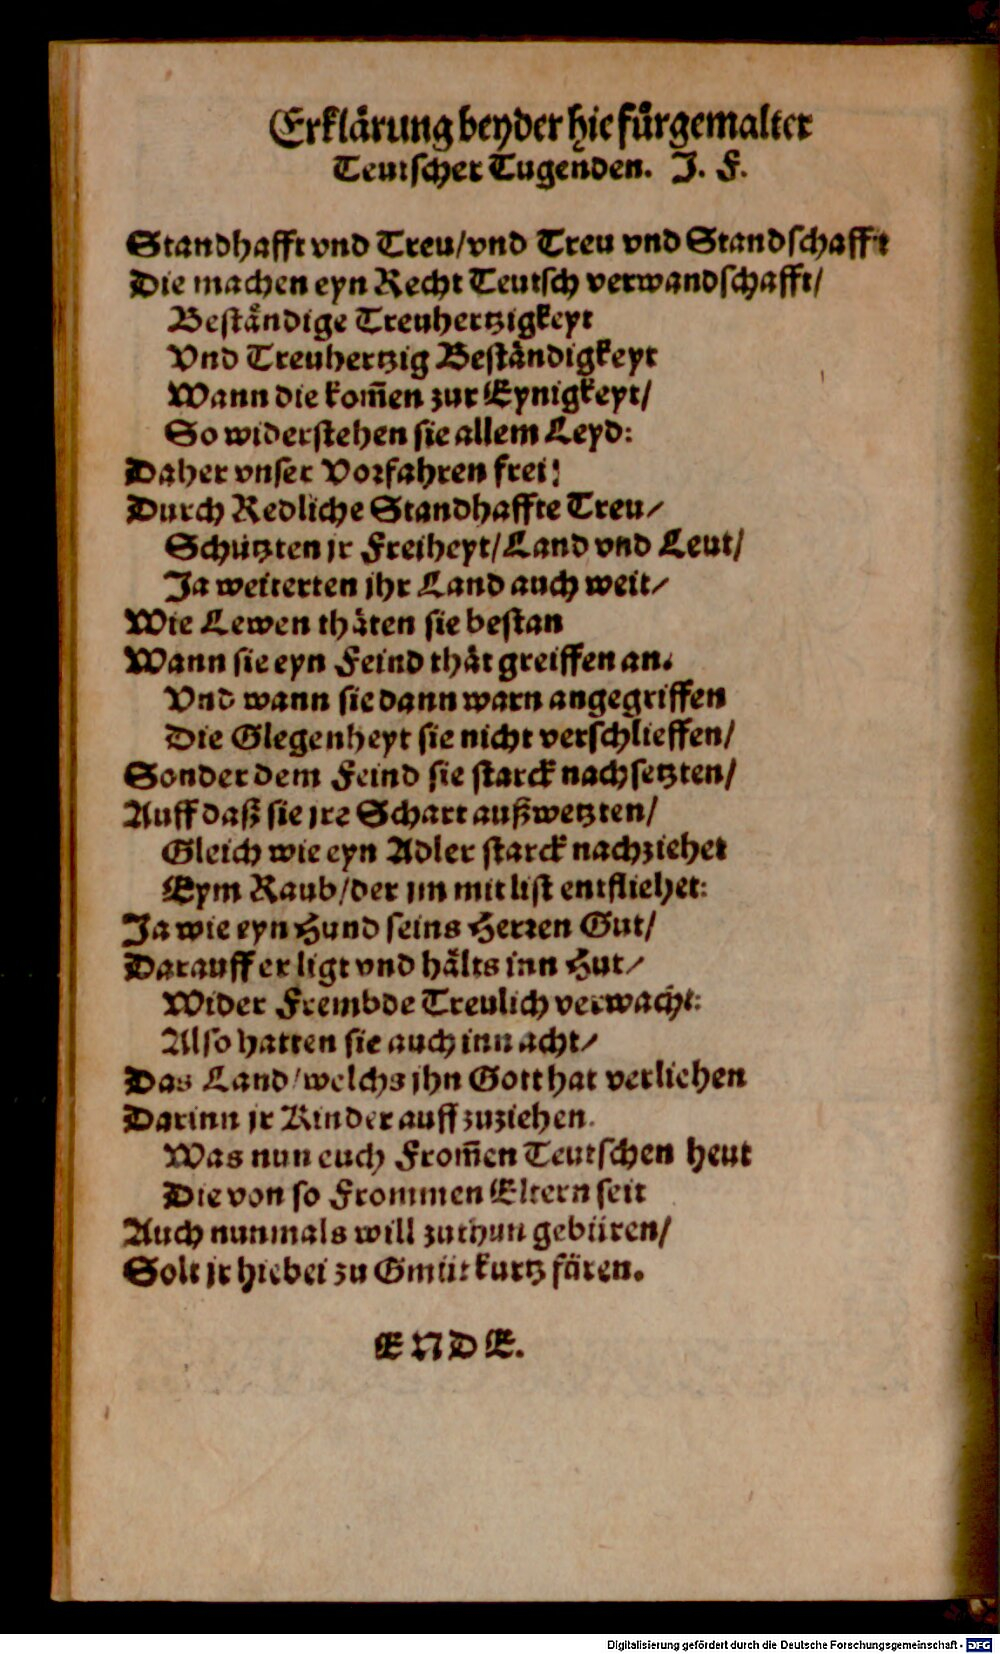 Erklärung beyder hie fürgemalter
Teutscher Tugenden. J. F.
Standhafft vnd Treu/vnd Treu vnd Standschafft
Die machen eyn Recht Teutsch verwandschafft/
Beständige Treuhertzigkeyt
Vnd Treuhertzig Beständigkeyt
Wann die kom̃en zur Eynigkeyt/
So widerstehen sie allem Leyd:
Daher vnser Vorfahren frei!
Durch Redliche Standhaffte Treu/
Schützten jr Freiheyt/Land vnd Leut/
Ja weiterten jhr Land auch weit/
Wie Lewen thäten sie bestan
Wann sie eyn Feind thät greiffen an.
Vnd wann sie dann warn angegriffen
Die Glegenheyt sie nicht verschlieffen/
Sonder dem Feind sie starck nachsetzten/
Auff daß sie jre Schart außwetzten/
Gleich wie eyn Adler starck nachziehet
Eym Raub/der jm mit list entfliehet:
Ja wie eyn Hund seins Herren Gut/
Darauff er ligt vnd hälts inn Hut/
Wider Frembde Treulich verwacht:
Also hatten sie auch inn acht/
Das Land/welchs jhn Gott hat verliehen
Darinn jr Kinder auffzuziehen.
Was nun euch From̃en Teutschen heut
Die von so Frommen Eltern seit
Auch nunmals will zuthun gebüren/
Solt jr hiebei zu Gmüt kurtz fären.
ENDE.
Digitalisierung gefördert durch die Deutsche Forschungsgemeinschaft - DFG